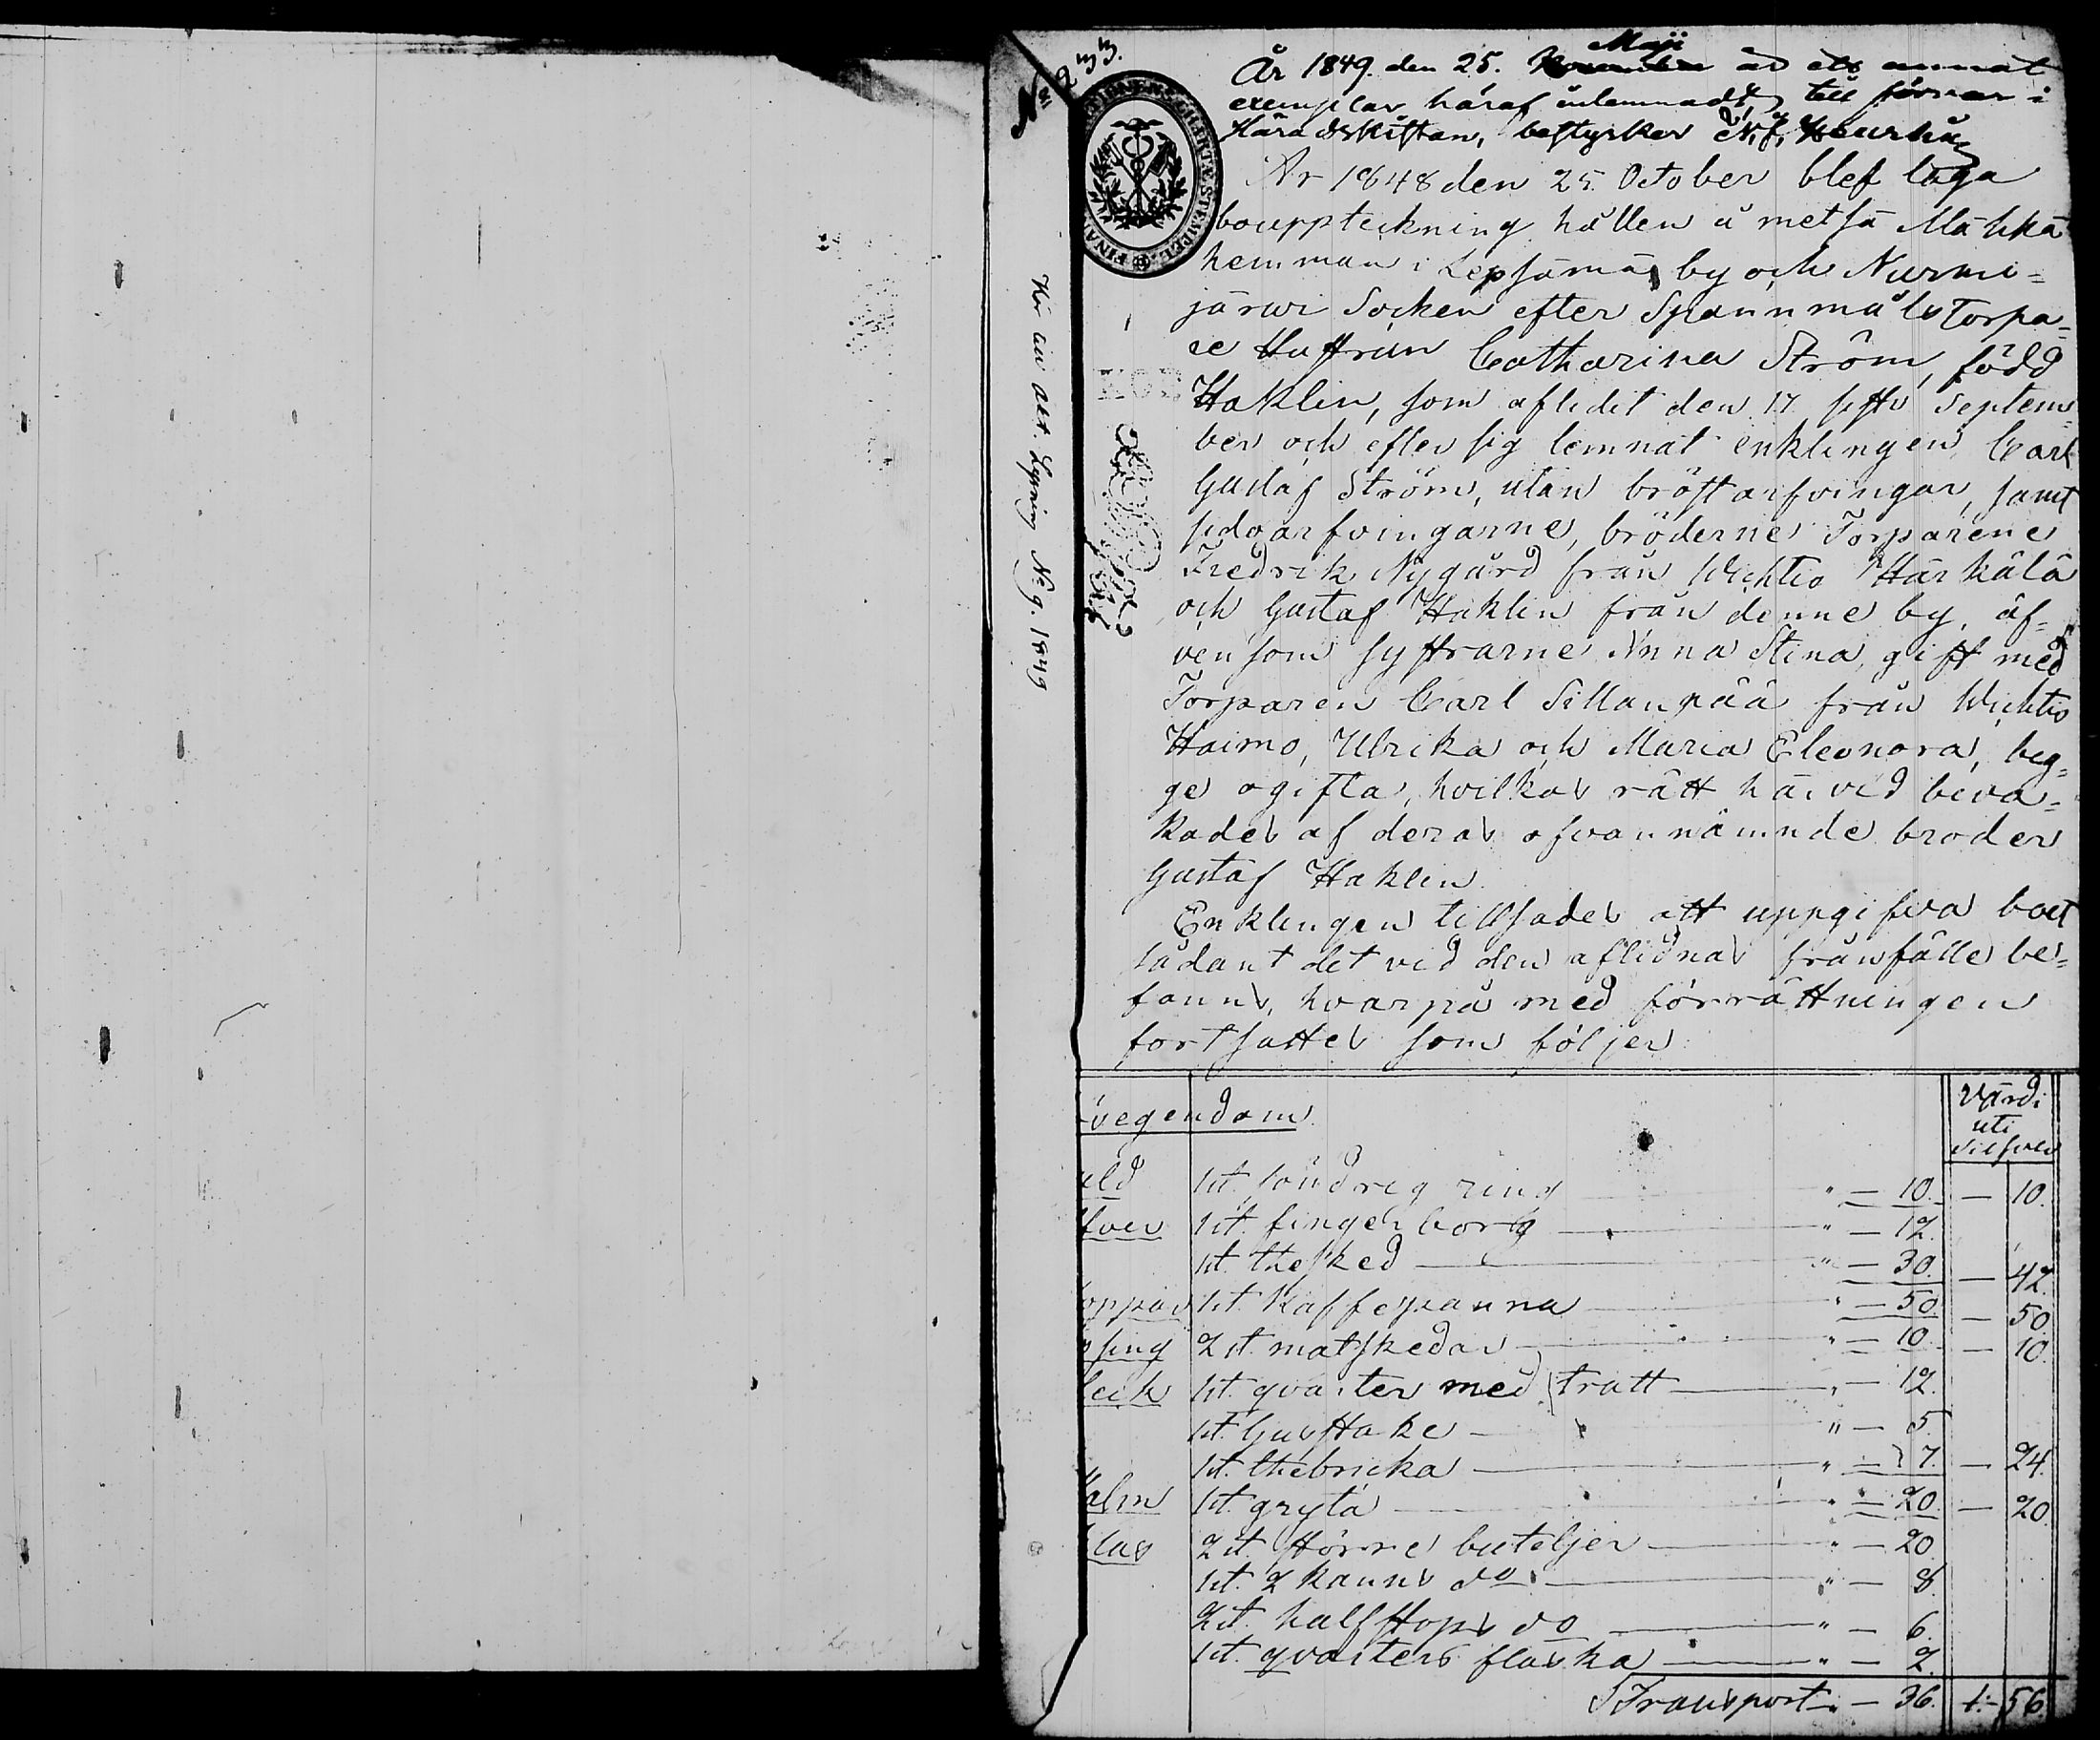 233.
År 1849. den 25. Maji är ett annat
exemplar häraf inlemnadt till förvar i
Häradskistan, bestyrker
År 1848 den 25. October blef laga
bouppteckning hållen å Metsä Mäskä
hemman i Lepsämä by och Nurmi-
järwi Socken efter Spannmålstorpa-
re Hustrun Catharina Ström, född
Haklin, som aflidit den 17 sistl. Septem-
ber och efter sig lemnat enklingen Carl
Gustaf Ström, utan bröstarfvingar, samt
sidoarfvingarne, bröderne Torparene
Fredrik Nygård från Wichtis Härkälä
och Gustaf Haklin från denne by, äf-
vensom systrarne Anna Stina, gift med
Torparen Carl Sillanpää från Wichtis
Haimo, Ulrika och Maria Eleonora, beg-
ge ogifta, hvilkas rätt härvid beva-
kades af deras ofvannämnde broder
Gustaf Haklin.
Enklingen tillsades att uppgifva boet
sådant det vid den aflidnas frånfälle be-
fanns, hvarpå med förrättningen
fortsattes som följer:
Värdi
uti
Silfver
svegendom
uld 1 st. söndrig ring " — 10. — 10.
lfver 1 st. fingerborg " — 12.
1 st. thesked " — 30. — 42.
oppar 1 st. kaffepanna " — 50. — 50
ssing 2 st. matskedar " — 10. — 10.
leck 1 st. qvarter med tratt " — 12.
1 st. ljusstake " — 5.
1 st. thebricka " — 7. — 24.
alm 1 st. gryta " — 20. — 20.
las 2 st. större buteljer " — 20.
1 st. 2 kanns do " — 8.
2 st. halfstops do " — 6.
1 st. qvarters flaska " — 2.
Transport — 36. 1:-56.
No 9. 1849